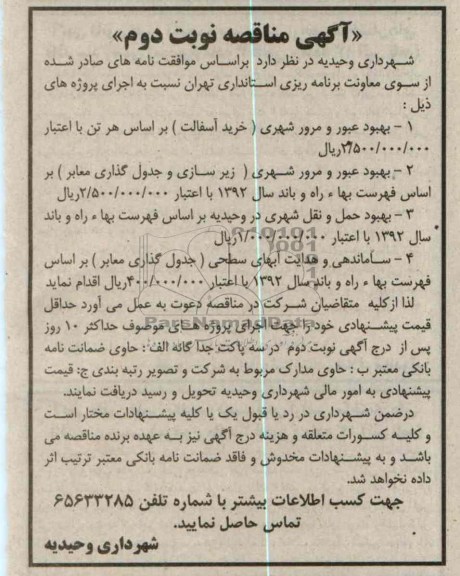 «آگهی مناقصه نوبت دوم»
شـهرداری وحیدیه در نظر دارد براسـاس موافقت نامه های صادر شده
از سـوی معاونت برنامه ریزی اسـتانداری تهران نسبت به اجرای پروژه های
ذیل :
۱ – بهبود عبور و مرور شهری ( خرید آسفالت ) بر اساس هر تن با اعتبار
۲/۵۰۰/۰۰۰/۰۰۰ریال
۲ – بهبود عبور و مرور شـهری ( زیر سـازی و جدول گذاری معابر ) بر
اساس فهرست بهاء راه و باند سال ۱۳۹۲ با اعتبار ۲/۵۰۰/۰۰۰/۰۰۰ریال
۳ – بهبود حمل و نقل شهری در وحیدیه بر اساس فهرست بهاء راه و باند
سال ۱۳۹۲ با اعتبار ۱/۰۰۰/۰۰۰/۰۰۰ریال
۴ – سـاماندهی و هدایت آبهای سطحی ( جدول گذاری معابر ) بر اساس
فهرست بهاء راه و باند سال ۱۳۹۲ با اعتبار ۴۰۰/۰۰۰/۰۰۰ریال اقدام نماید
لذا ازکلیه متقاضیان شـرکت در مناقصه دعوت به عمل می آورد حداقل
قیمت پیشـنهادی خود را جهت اجرای پروژه هـای موصوف حداکثر ۱۰ روز
پس از درج آگهی نوبت دوم در سه پاکت جدا گانه الف : حاوی ضمانت نامه
بانکی معتبر ب : حاوی مدارک مربوط به شرکت و تصویر رتبه بندی ج: قیمت
پیشنهادی به امور مالی شهرداری وحیدیه تحویل و رسید دریافت نمایند.
درضمن شهرداری در رد یا قبول یک یا کلیه پیشنهادات مختار است
و کلیـه کسـورات متعلقه و هزینه درج آگهی نیز بـه عهده برنده مناقصه می
باشـد و به پیشـنهادات مخدوش و فاقد ضمانت نامه بانکی معتبر ترتیب اثر
داده نخواهد شد.
جهت کسب اطلاعات بیشتر با شماره تلفن ۶۵۶۳۳۲۸۵
تماس حاصل نمایید.
شهرداری وحیدیه